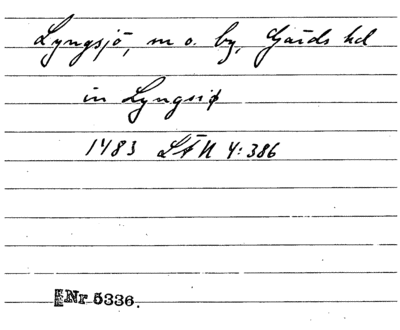 Lyngsjö, m o. by, Gärds hd
in Lyngsiø
1483 LÄN 4:386
Nr 5336.